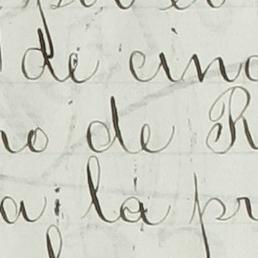 de cinc
no de R
ai la pr